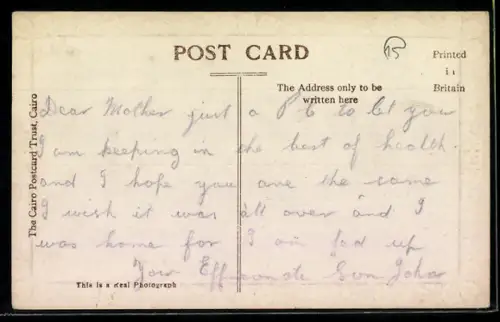 POST CARD
15
Printed
in
Britain
The Address only to be
written here
The Cairo Postcard Trust, Cairo
Dear Mother just a P C to let you
I am keeping in the best of health.
and I hope you are the same
I wish it was all over and I
was home for I am fed up
Your Effionate Son John
This is a Real Photograph